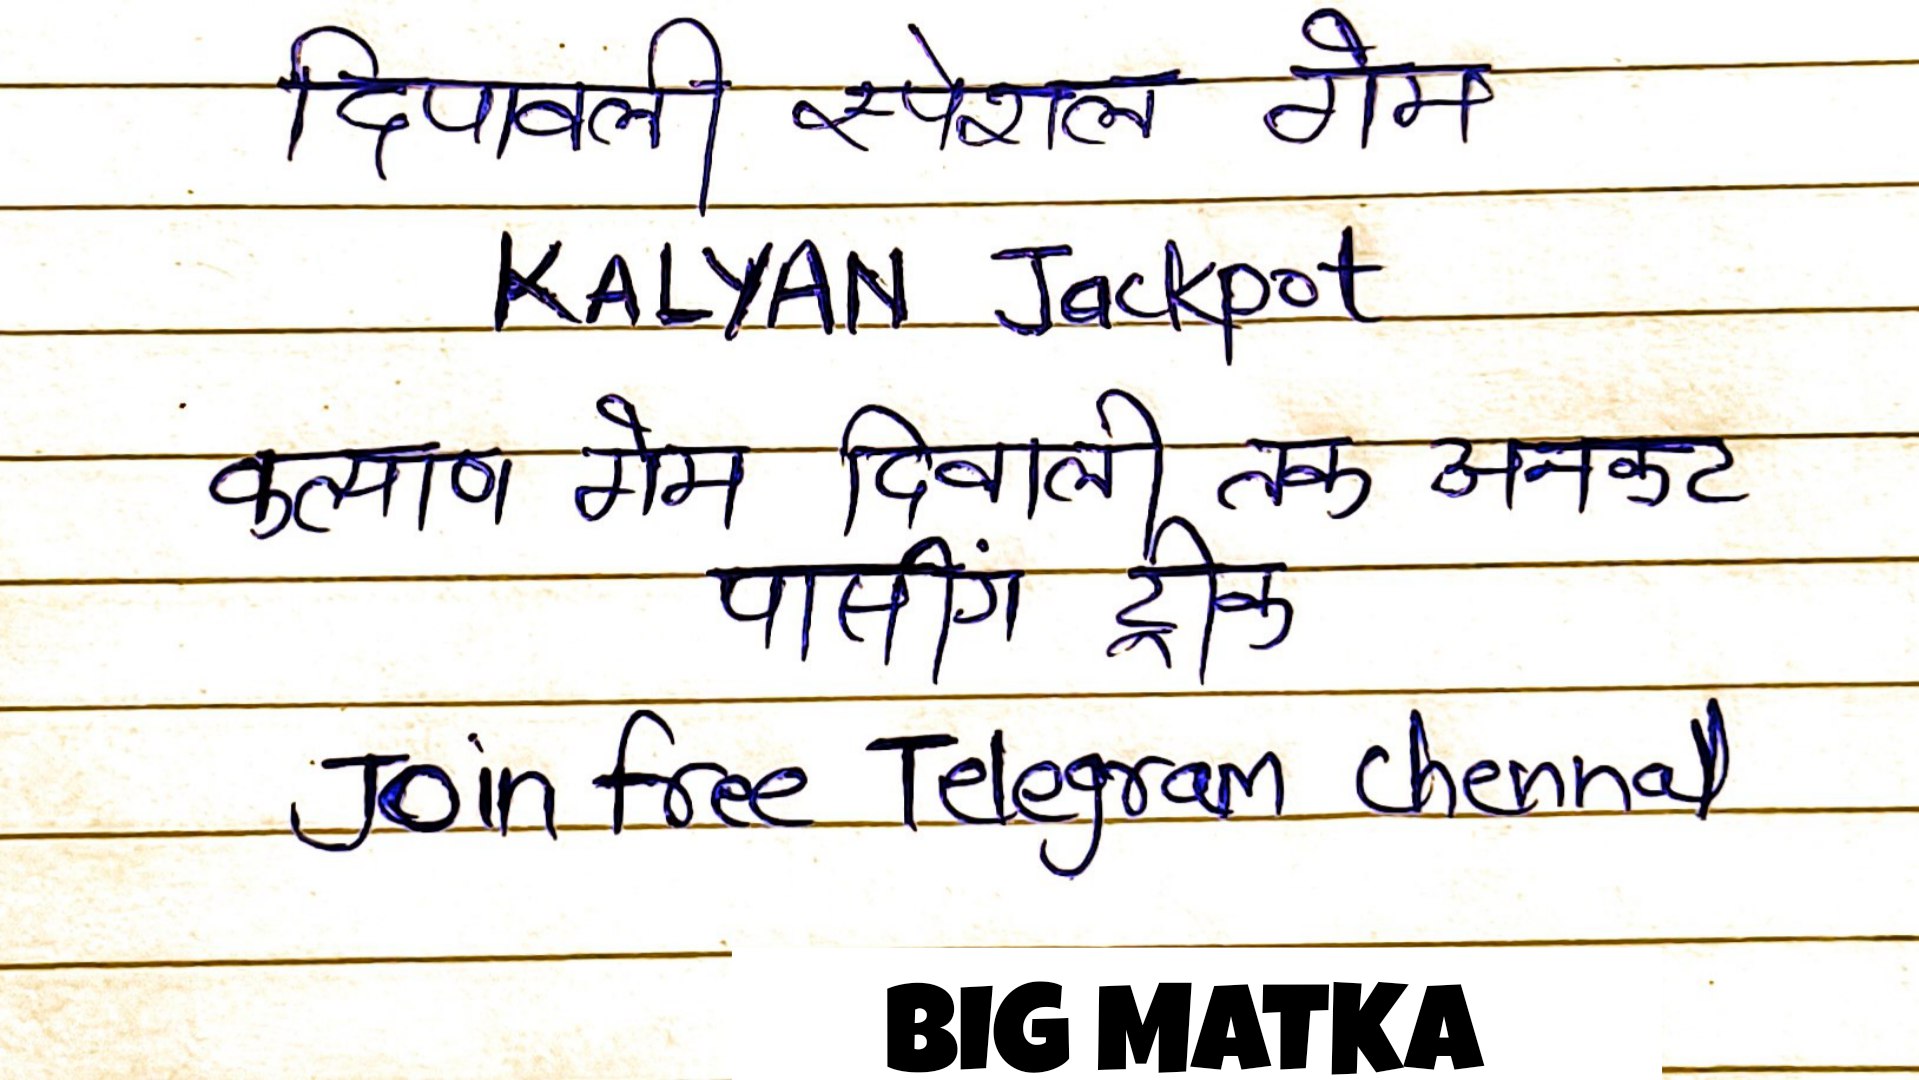 दिपावली स्पेशल गेम
KALYAN Jackpot
कल्याण गेम दिवाली तक अनकट
पासींग ट्रीक
Join free Telegram chennal
BIG MATKA